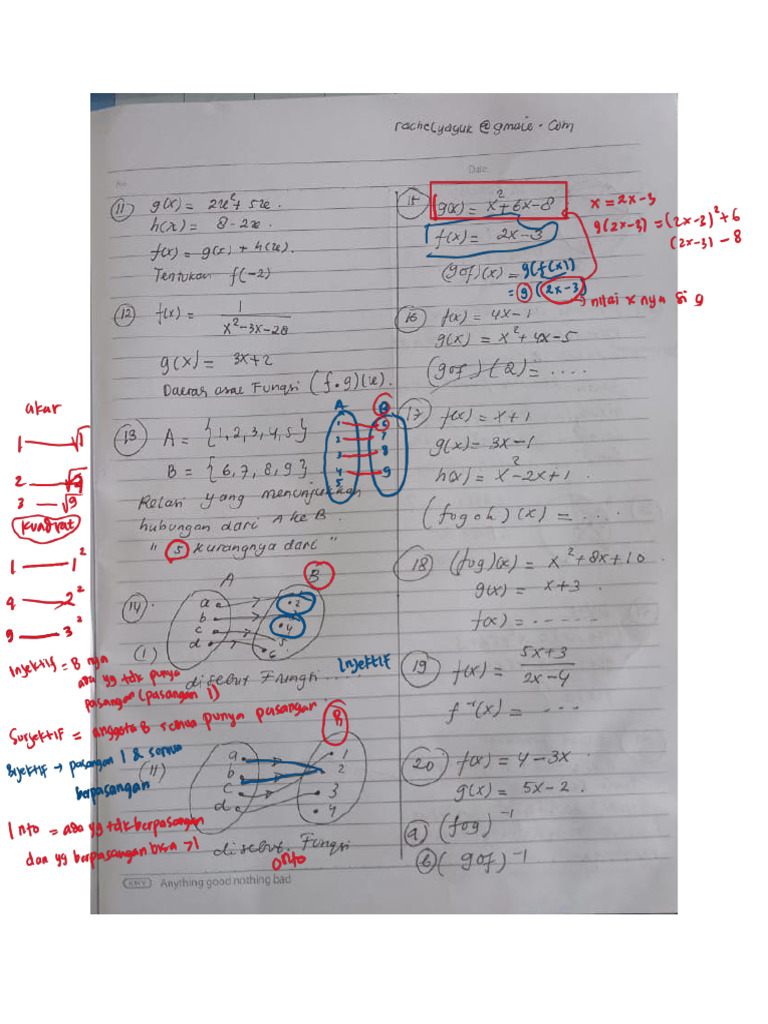 rachelyayuk@gmaie.com
No
Date
11 g(x) = 2x² + 5x.
h(x) = 8 - 2x.
f(x) = g(x) + h(x).
Tentukan f(-2)
12 f(x) = 1 / x² - 3x - 28
g(x) = 3x + 2
Daerah asal Fungsi (f . g)(x).
akar
1 √1
2
3 √9
Kuadrat
1 1²
4 2²
9 3²
13 A = {1, 2, 3, 4, 5}
B = {6, 7, 8, 9}
Relasi yang menunjukkan
hubungan dari A ke B.
" 5 kurangnya dari "
A B
1 6
2 7
3 8
4 9
5
14.
A B
a 2
b 4
c 5
d 6
(I)
disebut Fungsi ..... Injektif
Injektif = B nya
ada yg tdk punya
pasangan (pasangan 1)
Surjektif = anggota B semua punya pasangan
Bijektif → pasangan 1 & semua
berpasangan
(II)
B
a 1
b 2
c 3
d 4
Into = ada yg tdk berpasangan
dan yg berpasangan bisa >1
disebut Fungsi
onto
KKY Anything good nothing bad
15 g(x) = x² + 6x - 8
f(x) = 2x - 3
(gof)(x) = g(f(x))
= g (2x - 3)
→ nilai x nya si g
x = 2x - 3
g(2x-3) = (2x-3)² + 6
(2x-3) - 8
16 f(x) = 4x - 1
g(x) = x² + 4x - 5
(gof)(2) = ....
17 f(x) = x + 1
g(x) = 3x - 1
h(x) = x² - 2x + 1.
(fogoh)(x) = ....
18 (fog)(x) = x² + 8x + 10.
g(x) = x + 3
f(x) = .....
19 f(x) = 5x + 3 / 2x - 4
f⁻¹(x) = ...
20 f(x) = 4 - 3x.
g(x) = 5x - 2.
a) (fog)⁻¹
b) (gof)⁻¹